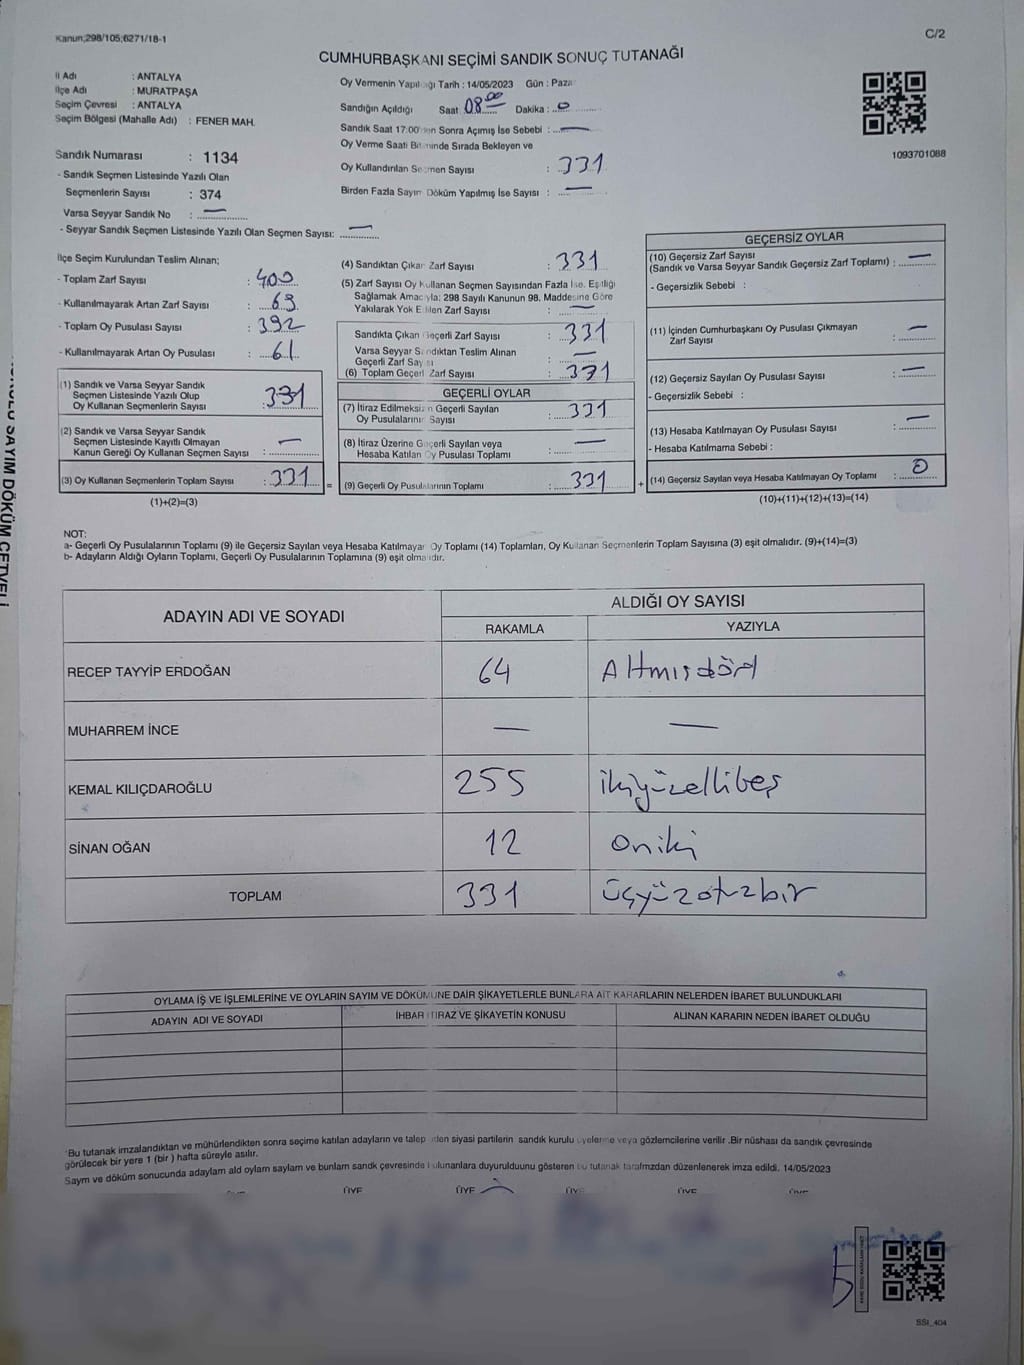 Kanun;298/105;6271/18-1
C/2
CUMHURBAŞKANI SEÇİMİ SANDIK SONUÇ TUTANAĞI
İl Adı : ANTALYA
İlçe Adı : MURATPAŞA
Seçim Çevresi : ANTALYA
Seçim Bölgesi (Mahalle Adı) : FENER MAH.
Sandık Numarası : 1134
- Sandık Seçmen Listesinde Yazılı Olan
Seçmenlerin Sayısı : 374
Varsa Seyyar Sandık No : —
- Seyyar Sandık Seçmen Listesinde Yazılı Olan Seçmen Sayısı: —
Oy Vermenin Yapıldığı Tarih : 14/05/2023 Gün : Pazar
Sandığın Açıldığı Saat 08 00 Dakika : 0
Sandık Saat 17:00'den Sonra Açımış İse Sebebi : —
Oy Verme Saati Bitiminde Sırada Bekleyen ve
Oy Kullandırılan Seçmen Sayısı : 331
Birden Fazla Sayım Döküm Yapılmış İse Sayısı : —
1093701088
İlçe Seçim Kurulundan Teslim Alınan;
- Toplam Zarf Sayısı : 400
- Kullanılmayarak Artan Zarf Sayısı : 69
- Toplam Oy Pusulası Sayısı : 392
- Kullanılmayarak Artan Oy Pusulası : 61
(1) Sandık ve Varsa Seyyar Sandık
Seçmen Listesinde Yazılı Olup
Oy Kullanan Seçmenlerin Sayısı : 331
(2) Sandık ve Varsa Seyyar Sandık
Seçmen Listesinde Kayıtlı Olmayan
Kanun Gereği Oy Kullanan Seçmen Sayısı : —
(3) Oy Kullanan Seçmenlerin Toplam Sayısı : 331
(1)+(2)=(3)
(4) Sandıktan Çıkan Zarf Sayısı : 331
(5) Zarf Sayısı Oy Kullanan Seçmen Sayısından Fazla İse, Eşitliği
Sağlamak Amacıyla; 298 Sayılı Kanunun 98. Maddesine Göre
Yakılarak Yok Edilen Zarf Sayısı : —
Sandıkta Çıkan Geçerli Zarf Sayısı : 331
Varsa Seyyar Sandıktan Teslim Alınan
Geçerli Zarf Sayısı : —
(6) Toplam Geçerli Zarf Sayısı : 331
GEÇERLİ OYLAR
(7) İtiraz Edilmeksizin Geçerli Sayılan
Oy Pusulalarının Sayısı : 331
(8) İtiraz Üzerine Geçerli Sayılan veya
Hesaba Katılan Oy Pusulası Toplamı : —
= (9) Geçerli Oy Pusulalarının Toplamı : 331
GEÇERSİZ OYLAR
(10) Geçersiz Zarf Sayısı
(Sandık ve Varsa Seyyar Sandık Geçersiz Zarf Toplamı) : —
- Geçersizlik Sebebi :
(11) İçinden Cumhurbaşkanı Oy Pusulası Çıkmayan
Zarf Sayısı : —
(12) Geçersiz Sayılan Oy Pusulası Sayısı : —
- Geçersizlik Sebebi :
(13) Hesaba Katılmayan Oy Pusulası Sayısı : —
- Hesaba Katılmama Sebebi :
+ (14) Geçersiz Sayılan veya Hesaba Katılmayan Oy Toplamı : 0
(10)+(11)+(12)+(13)=(14)
NOT:
a- Geçerli Oy Pusulalarının Toplamı (9) ile Geçersiz Sayılan veya Hesaba Katılmayan Oy Toplamı (14) Toplamları, Oy Kullanan Seçmenlerin Toplam Sayısına (3) eşit olmalıdır. (9)+(14)=(3)
b- Adayların Aldığı Oyların Toplamı, Geçerli Oy Pusulalarının Toplamına (9) eşit olmalıdır.
ADAYIN ADI VE SOYADI
ALDIĞI OY SAYISI
RAKAMLA YAZIYLA
RECEP TAYYİP ERDOĞAN 64 Altmışdört
MUHARREM İNCE — —
KEMAL KILIÇDAROĞLU 255 ikiyüzellibeş
SİNAN OĞAN 12 oniki
TOPLAM 331 üçyüzotuzbir
OYLAMA İŞ VE İŞLEMLERİNE VE OYLARIN SAYIM VE DÖKÜMÜNE DAİR ŞİKAYETLERLE BUNLARA AİT KARARLARIN NELERDEN İBARET BULUNDUKLARI
ADAYIN ADI VE SOYADI İHBAR İTİRAZ VE ŞİKAYETİN KONUSU ALINAN KARARIN NEDEN İBARET OLDUĞU
Bu tutanak imzalandıktan ve mühürlendikten sonra seçime katılan adayların ve talep eden siyasi partilerin sandık kurulu üyelerine veya gözlemcilerine verilir .Bir nüshası da sandık çevresinde
görülecek bir yere 1 (bir ) hafta süreyle asılır.
Saym ve döküm sonucunda adaylarn ald oylarn saylarn ve bunlarn sandk çevresinde bulunanlara duyurulduunu gösteren bu tutanak tarafmzdan düzenlenerek imza edildi. 14/05/2023
ÜYE ÜYE ÜYE ÜYE ÜYE
SSI_404
SAYIM DÖKÜM CETVELİ